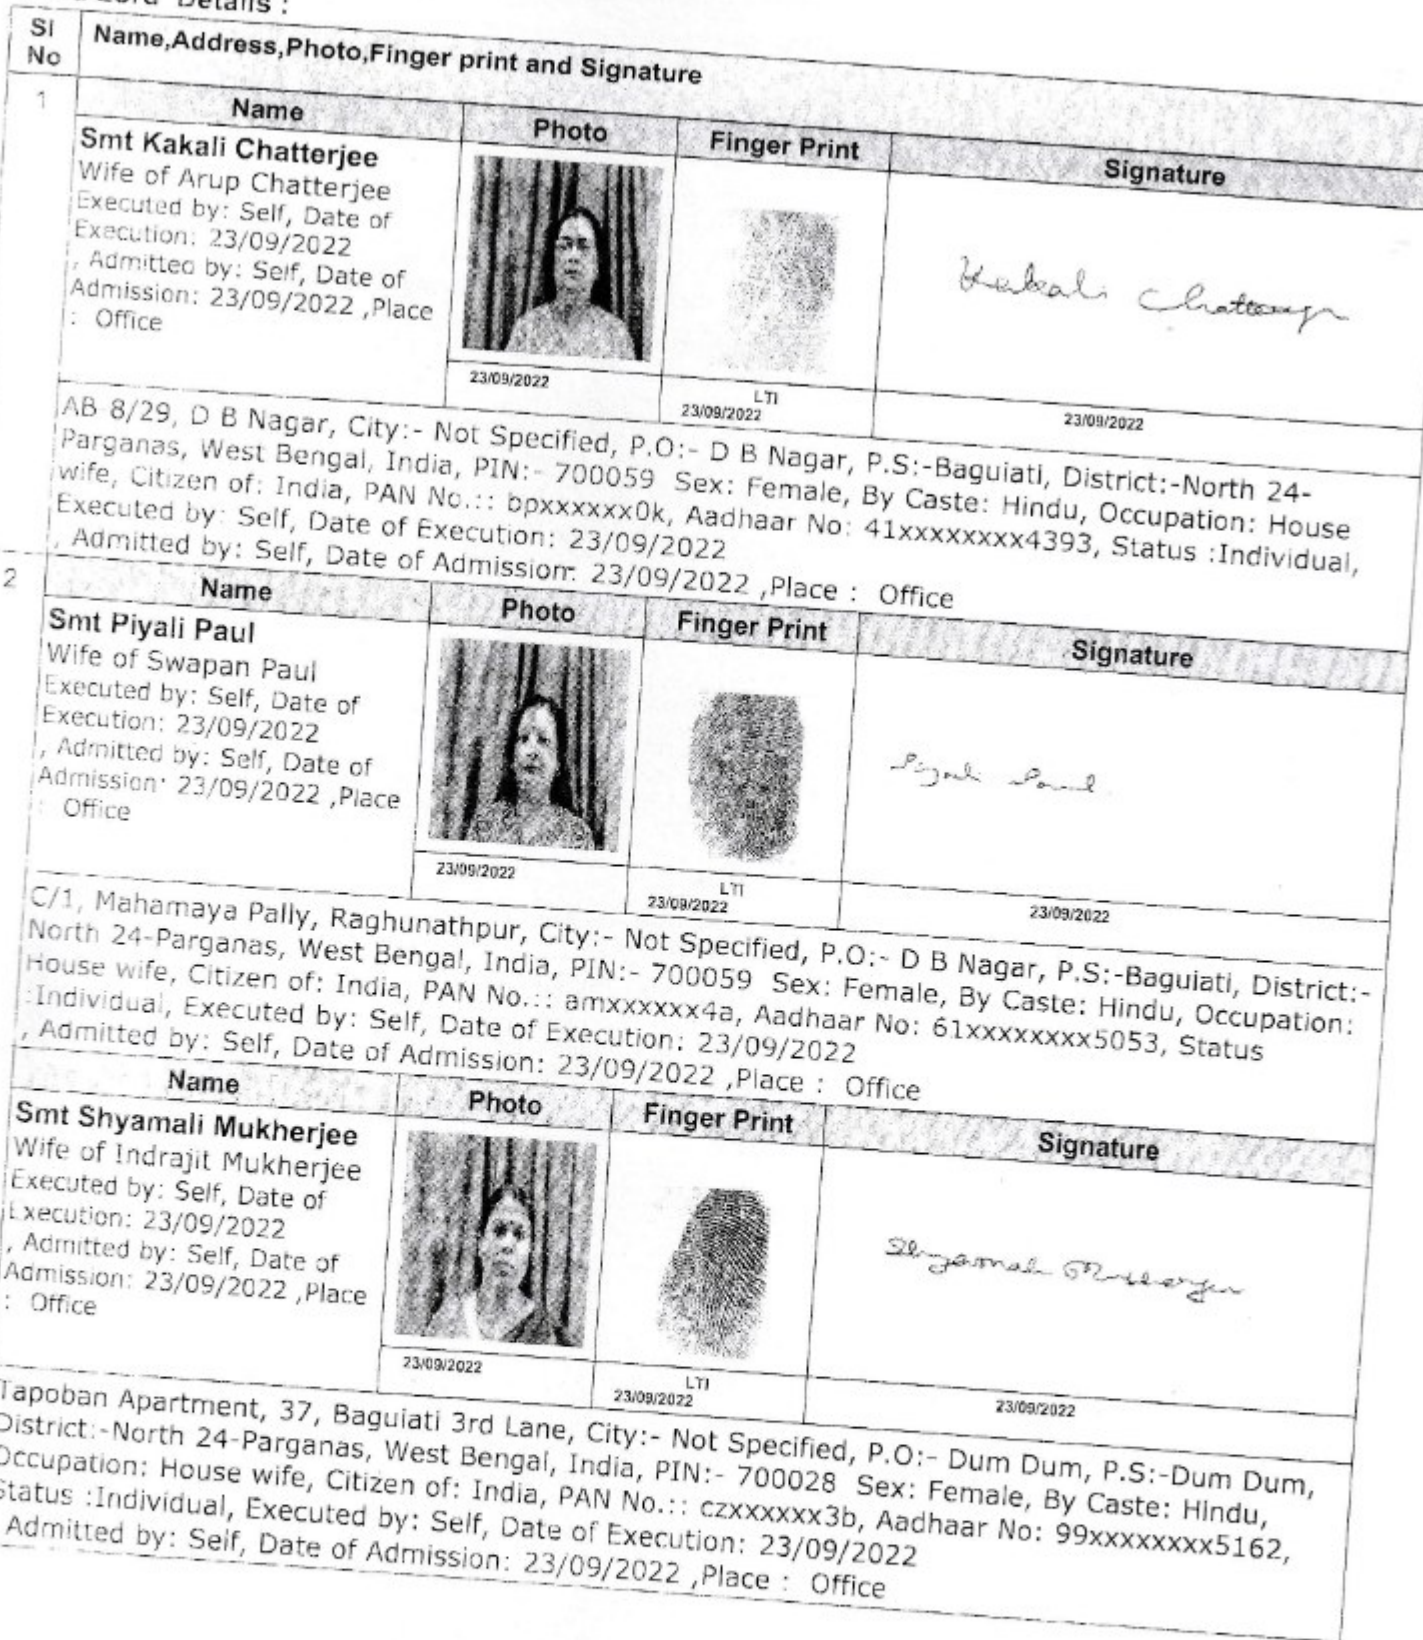 Details :
Sl No
Name,Address,Photo,Finger print and Signature
1
Name
Photo
Finger Print
Signature
Smt Kakali Chatterjee
Wife of Arup Chatterjee
Executed by: Self, Date of
Execution: 23/09/2022
, Admitted by: Self, Date of
Admission: 23/09/2022 ,Place
: Office
Kakali Chatterjee
23/09/2022
LTI
23/09/2022
23/09/2022
AB 8/29, D B Nagar, City:- Not Specified, P.O:- D B Nagar, P.S:-Baguiati, District:-North 24-
Parganas, West Bengal, India, PIN:- 700059 Sex: Female, By Caste: Hindu, Occupation: House
wife, Citizen of: India, PAN No.:: bpxxxxxx0k, Aadhaar No: 41xxxxxxxx4393, Status :Individual,
Executed by: Self, Date of Execution: 23/09/2022
, Admitted by: Self, Date of Admission: 23/09/2022 ,Place : Office
2
Name
Photo
Finger Print
Signature
Smt Piyali Paul
Wife of Swapan Paul
Executed by: Self, Date of
Execution: 23/09/2022
, Admitted by: Self, Date of
Admission: 23/09/2022 ,Place
: Office
Piyali Paul
23/09/2022
LTI
23/09/2022
23/09/2022
C/1, Mahamaya Pally, Raghunathpur, City:- Not Specified, P.O:- D B Nagar, P.S:-Baguiati, District:-
North 24-Parganas, West Bengal, India, PIN:- 700059 Sex: Female, By Caste: Hindu, Occupation:
House wife, Citizen of: India, PAN No.:: amxxxxxx4a, Aadhaar No: 61xxxxxxxx5053, Status
:Individual, Executed by: Self, Date of Execution: 23/09/2022
, Admitted by: Self, Date of Admission: 23/09/2022 ,Place : Office
Name
Photo
Finger Print
Signature
Smt Shyamali Mukherjee
Wife of Indrajit Mukherjee
Executed by: Self, Date of
Execution: 23/09/2022
, Admitted by: Self, Date of
Admission: 23/09/2022 ,Place
: Office
Shyamali Mukherjee
23/09/2022
LTI
23/09/2022
23/09/2022
Tapoban Apartment, 37, Baguiati 3rd Lane, City:- Not Specified, P.O:- Dum Dum, P.S:-Dum Dum,
District:-North 24-Parganas, West Bengal, India, PIN:- 700028 Sex: Female, By Caste: Hindu,
Occupation: House wife, Citizen of: India, PAN No.:: czxxxxxx3b, Aadhaar No: 99xxxxxxxx5162,
Status :Individual, Executed by: Self, Date of Execution: 23/09/2022
Admitted by: Self, Date of Admission: 23/09/2022 ,Place : Office